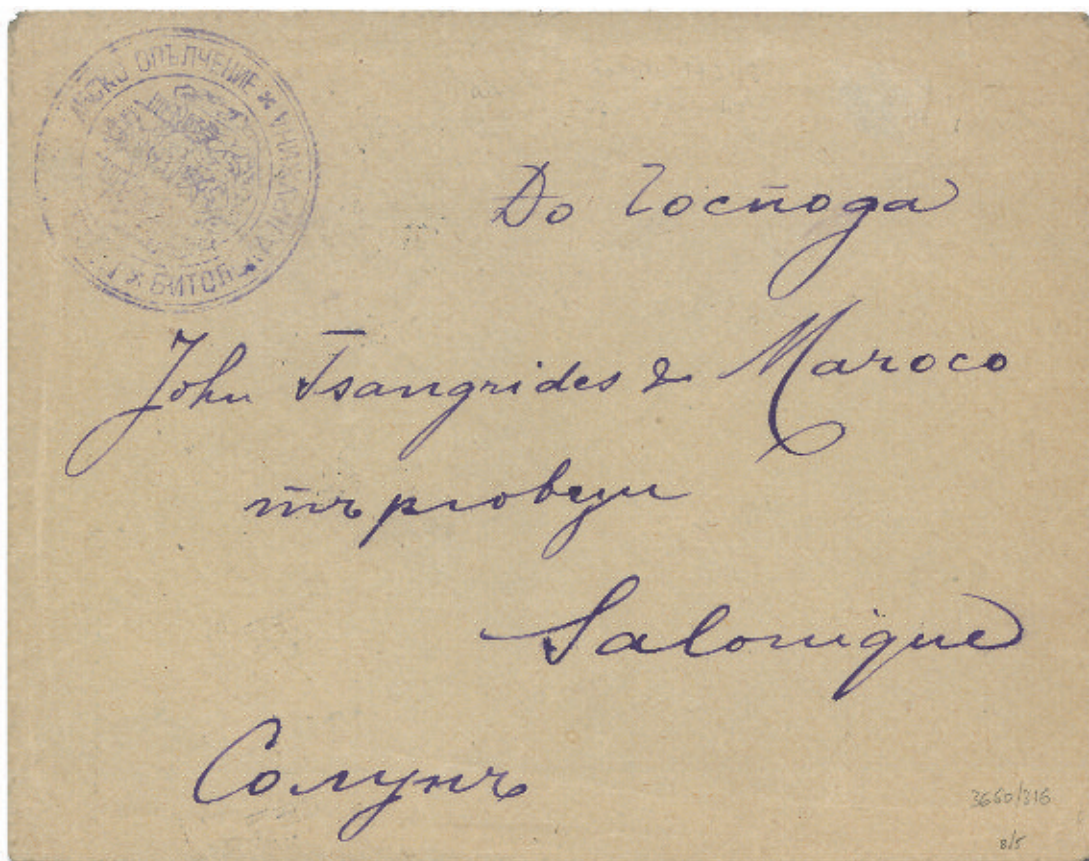 ОПЪЛЧЕНИЕ
БИТОЛ
До Господа
John Tsangrides & Maroco
търговци
Salonique
Солунъ
3660/316
8/5